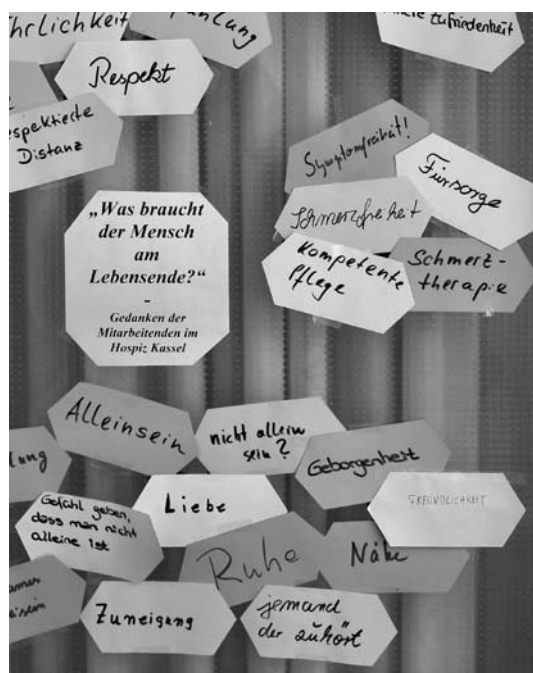 Respekt
espektierte
Distanz
Symptomfreiheit!
Fürsorge
Schmerzfreiheit
Kompetente
Pflege
Schmerz-
therapie
„Was braucht
der Mensch
am
Lebensende?“
-
Gedanken der
Mitarbeitenden im
Hospiz Kassel
Alleinsein
nicht allein
sein?
Geborgenheit
FREUNDLICHKEIT
Gefühl geben,
dass man nicht
alleine ist
Liebe
Ruhe
Nähe
Zuneigung
jemand
der zuhört